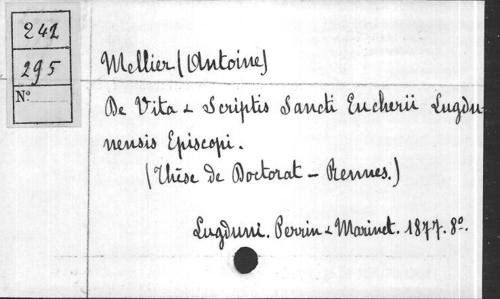 242
295
N°
Mellier (Antoine)
De Vita & Scriptis Sancti Eucherii Lugdu
nensis Episcopi.
(Thèse de Doctorat - Rennes.)
Lugduni. Perrin & Marinet. 1877. 8°.